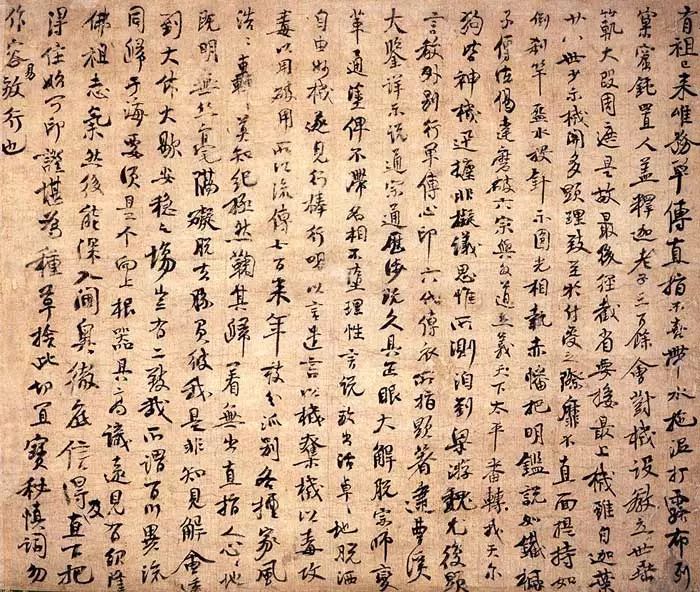 有祖已來唯務單傳直指不喜帶水拖泥打露布列
窠窟鈍置人蓋釋迦老子三百餘會對機設教立世垂
範大段周遮是故最後徑截省要接最上機雖自迦葉
廿八世少示機關多顯理致至於付受之際靡不直面提持如
倒刹竿盋水投針示圓光相執赤幡把明鑑說如鐵橛
子傳法偈達磨破六宗與外道立義天下太平番轉我天尔
狗皆神機迅捷非擬議思惟所測洎到梁游魏尤復顯
言教外別行單傳心印六代傳衣所指顯著逮曹溪
大鑒詳示說通宗通歷涉既久具正眼大解脫宗師變
革通塗俾不滯名相不墮理性言說放出活卓〻地脫洒
自由妙機遂見行棒行喝以言遣言以機奪機以毒攻
毒以用破用所以流傳七百來年枝分派別各擅家風
浩〻轟〻莫知紀極然鞫其歸著無出直指人心〻地
既明無絲毫隔礙脫去勝負彼我是非知見解會透
到大休大歇安穩之場豈有二致哉所謂百川異流
同歸于海要須是个向上根器具高識遠見有紹隆
佛祖志氣然後能深入閫奧徹底信得及直下把
得住始可印證堪為種草捨此切宜寶秘慎詞勿
作容易放行也